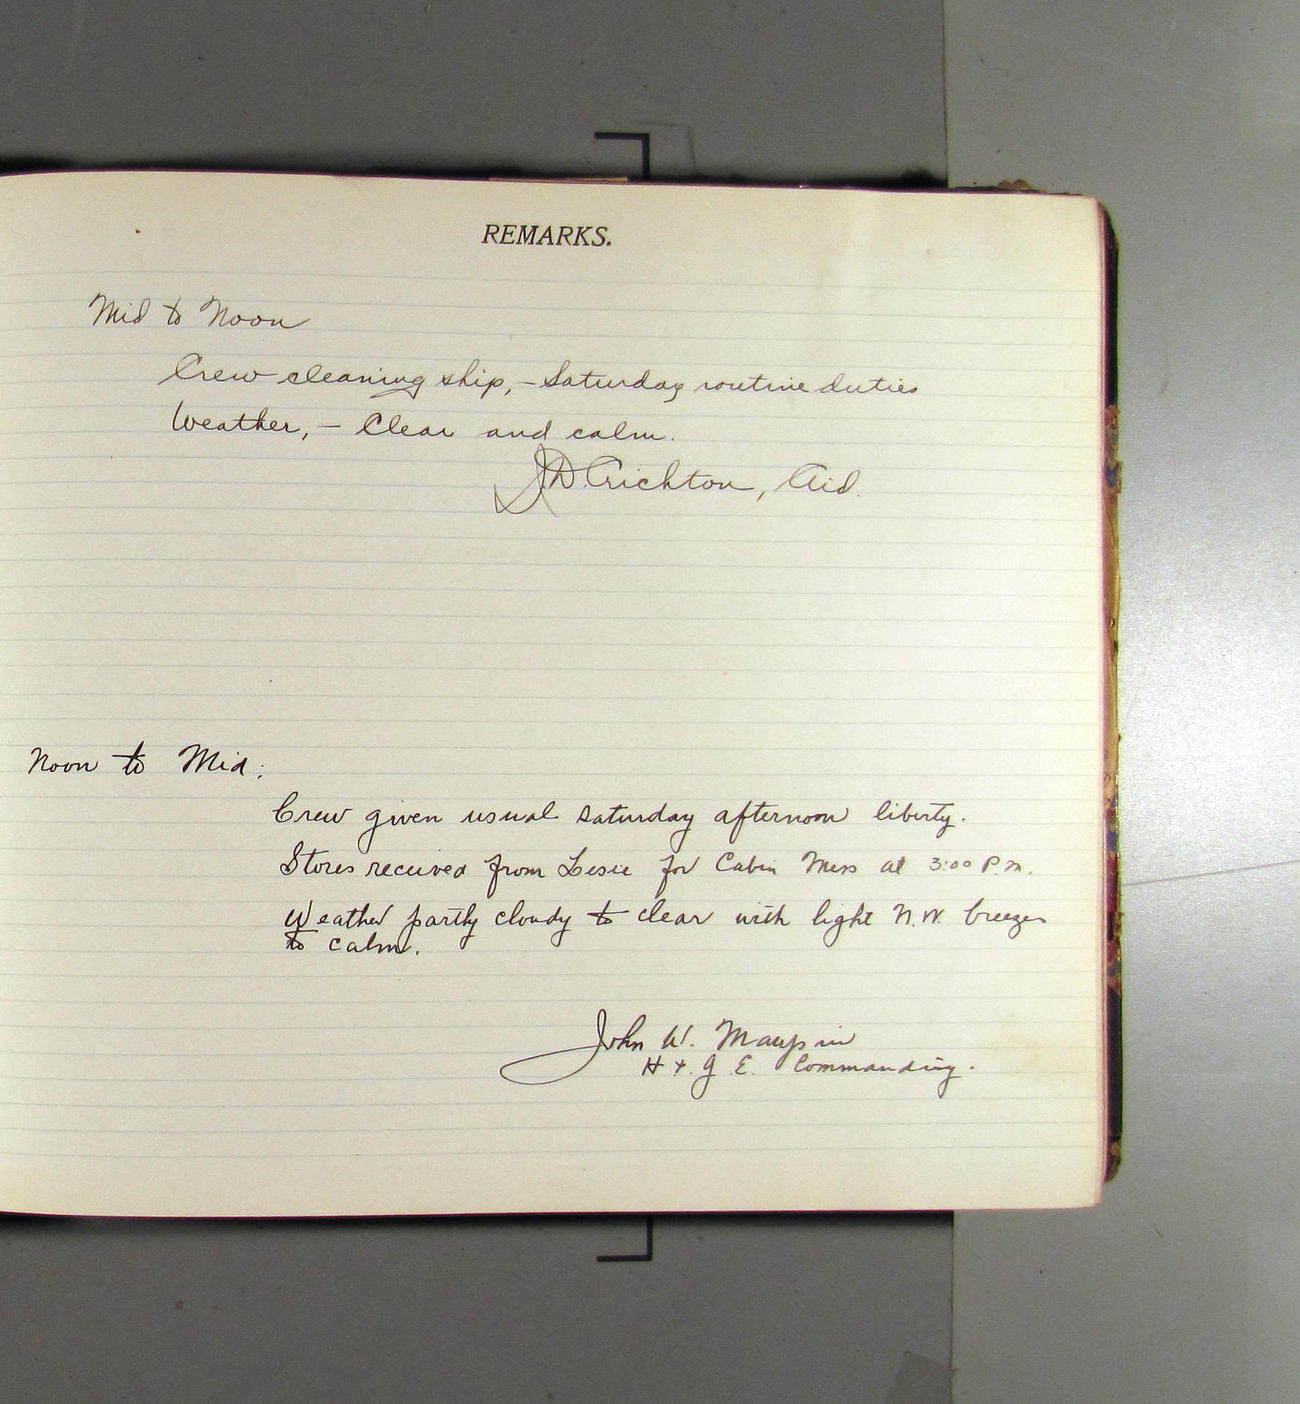 REMARKS.
Mid to Noon
Crew cleaning ship, - Saturday routine duties
Weather, - Clear and calm.
J.D. Crichton, Aid.
Noon to Mid:
Crew given usual Saturday afternoon liberty.
Stores received from for Cabin Mess at 3:00 P.M.
Weather partly cloudy to clear with light N.W. breezes
to calm.
John W. Maupin
H & G E. Commanding.